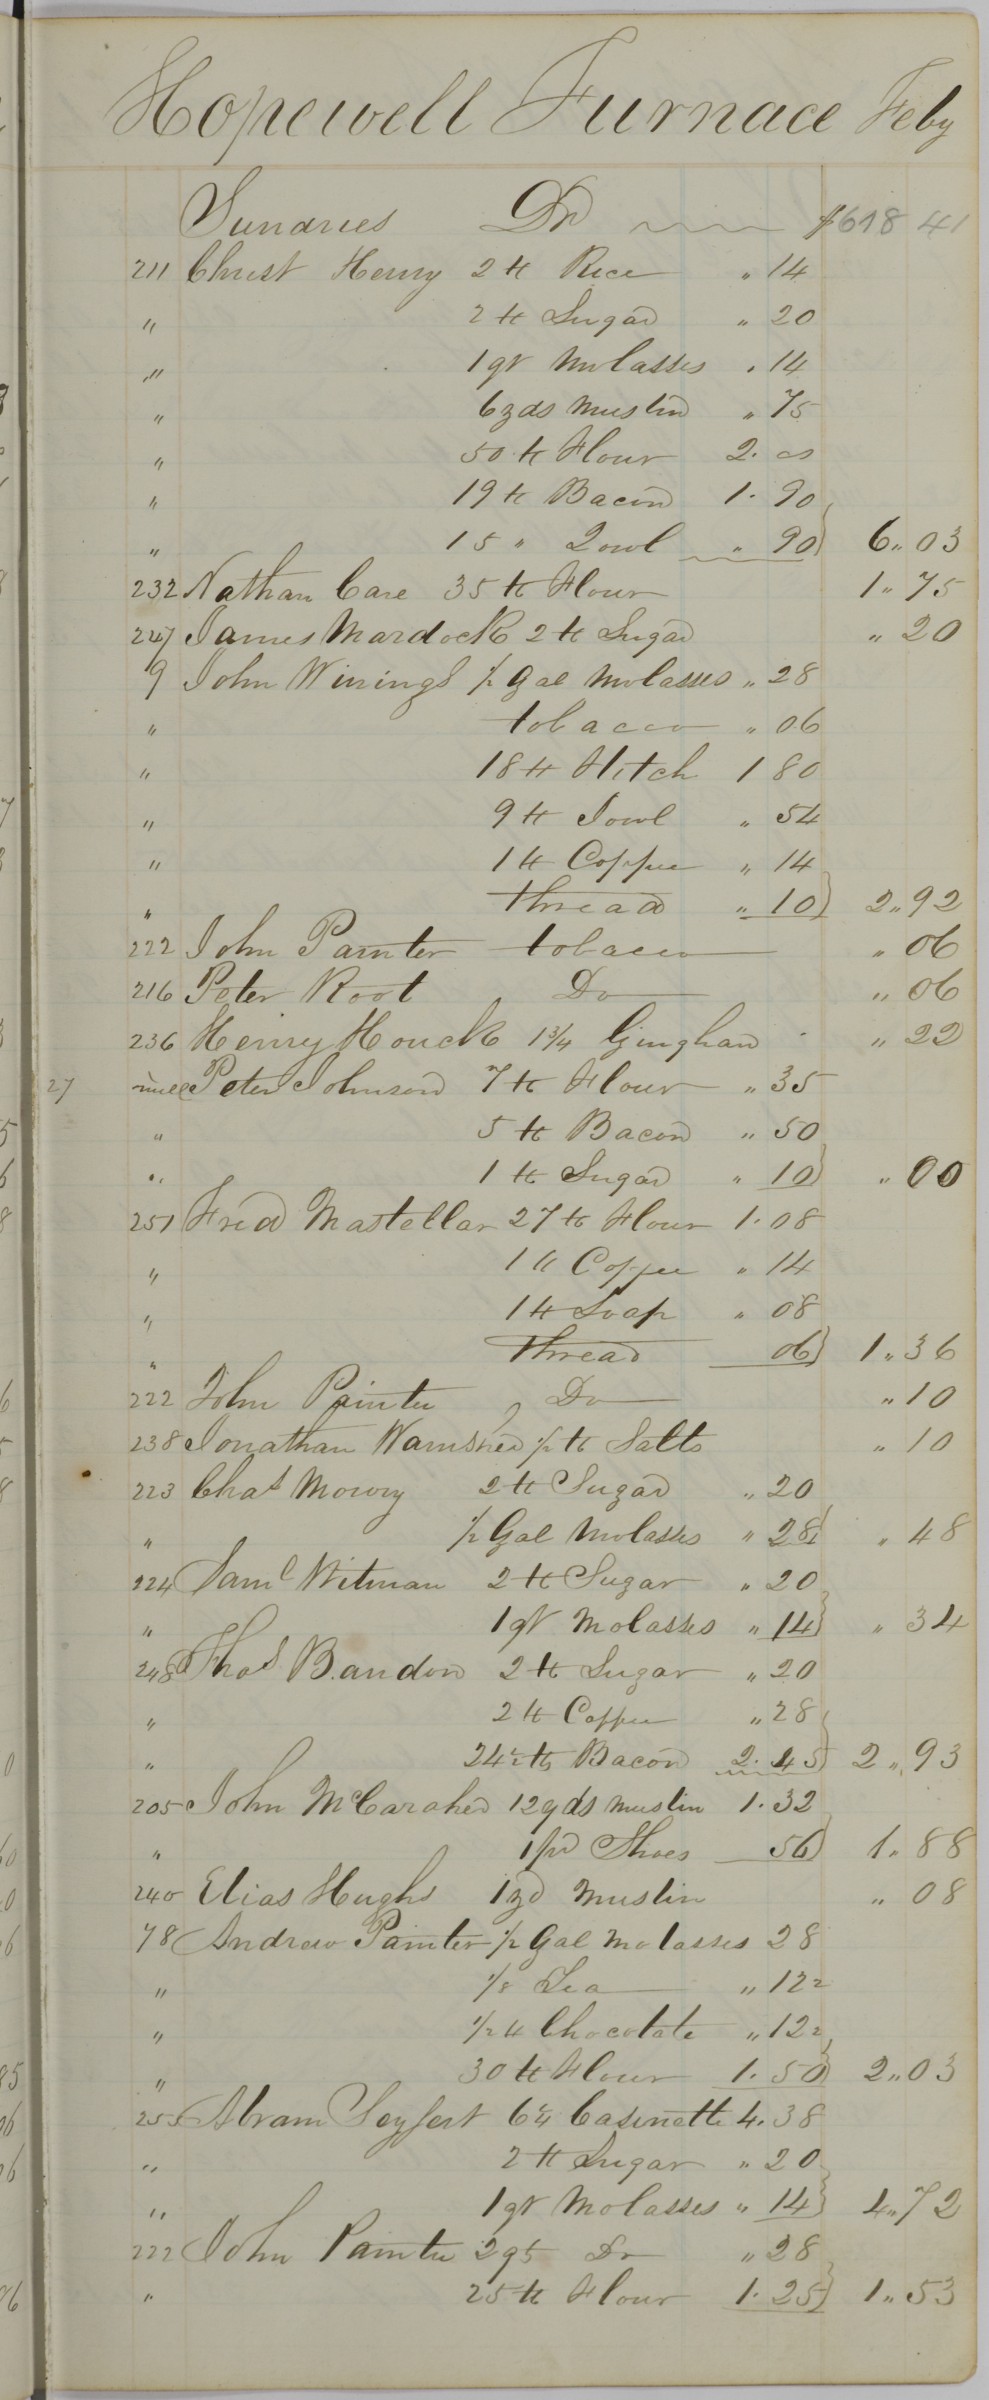 Hopewell Furnace Feby
Sundries Dr $618 41
211 Christ Henry 2 ℔ Rice " 14
" 2 ℔ Sugar " 20
" 1 qt Molasses " 14
" 6 yds Muslin " 75
" 50 ℔ Flour 2. 00
" 19 ℔ Bacon 1. 90
" 15 " Jowl " 90 6" 03
232 Nathan Care 35 ℔ Flour 1" 75
247 James Mardock 2 ℔ Sugar " 20
9 John Winings 1/2 Gal Molasses " 28
" tobacco " 06
" 18 ℔ Flitch 1 80
" 9 ℔ Jowl " 54
" 1 ℔ Coffee " 14
" thread " 10 2" 92
222 John Painter tobacco " 06
216 Peter Root Do " 06
236 Henry Houck 1 3/4 Gingham " 22
27 Peter Johnson 7 ℔ Flour " 35
" 5 ℔ Bacon " 50
" 1 ℔ Sugar " 10 " 00
251 Fred Mastellar 27 ℔ Flour 1. 08
" 1 " Coffee " 14
" 1 ℔ Soap " 08
" thread 06 1" 36
222 John Painter Do " 10
238 Jonathan 1/2 ℔ Salts " 10
223 Chas Mowry 2 ℔ Sugar " 20
" 1/2 Gal Molasses " 28 " 48
224 Saml Witman 2 ℔ Sugar " 20
" 1 qt Molasses " 14 " 34
248 Thos Bandon 2 ℔ Sugar " 20
" 2 ℔ Coffee " 28
" 24 1/2 ℔ Bacon 2. 45 2" 93
205 John McCaraher 12 yds muslin 1. 32
" 1 pr Shoes 56 1" 88
240 Elias Hughs 1 yd Muslin " 08
78 Andrew Painter 1/2 Gal Molasses 28
" 1/8 Tea " 12 2
" 1/2 ℔ Chocolate " 12 2
" 30 ℔ Flour 1. 50 2" 03
255 Abram Seyfert 6 1/4 Casinette 4. 38
" 2 ℔ Sugar " 20
" 1 qt Molasses " 14 4" 72
222 John Painter 2 qts Do " 28
" 25 ℔ Flour 1. 25 1" 53